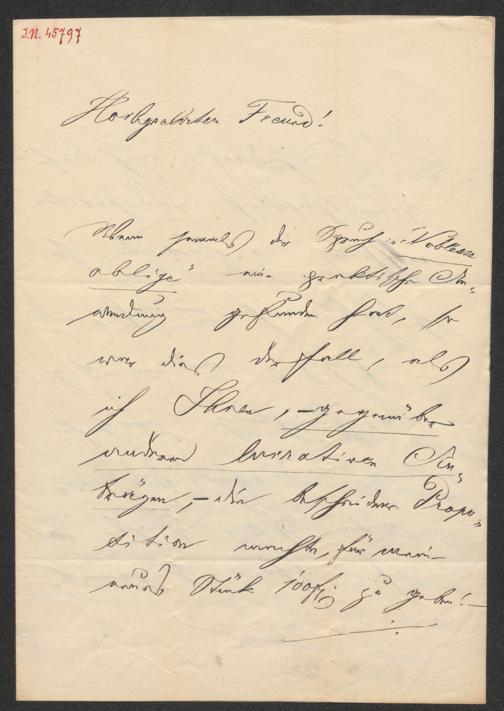 I.N. 45797
Hochgeehrter Freund!
Wenn jemals der Spruch: „Noblesse
oblige" eine praktische An-
wendung gefunden hat, so
war dies der Fall, als
ich Ihnen, – gegenüber
anderen lucrativen An-
trägen, – die bescheidene Propo-
sition machte, für mein
neues Stück 100 fl. zu geben! –